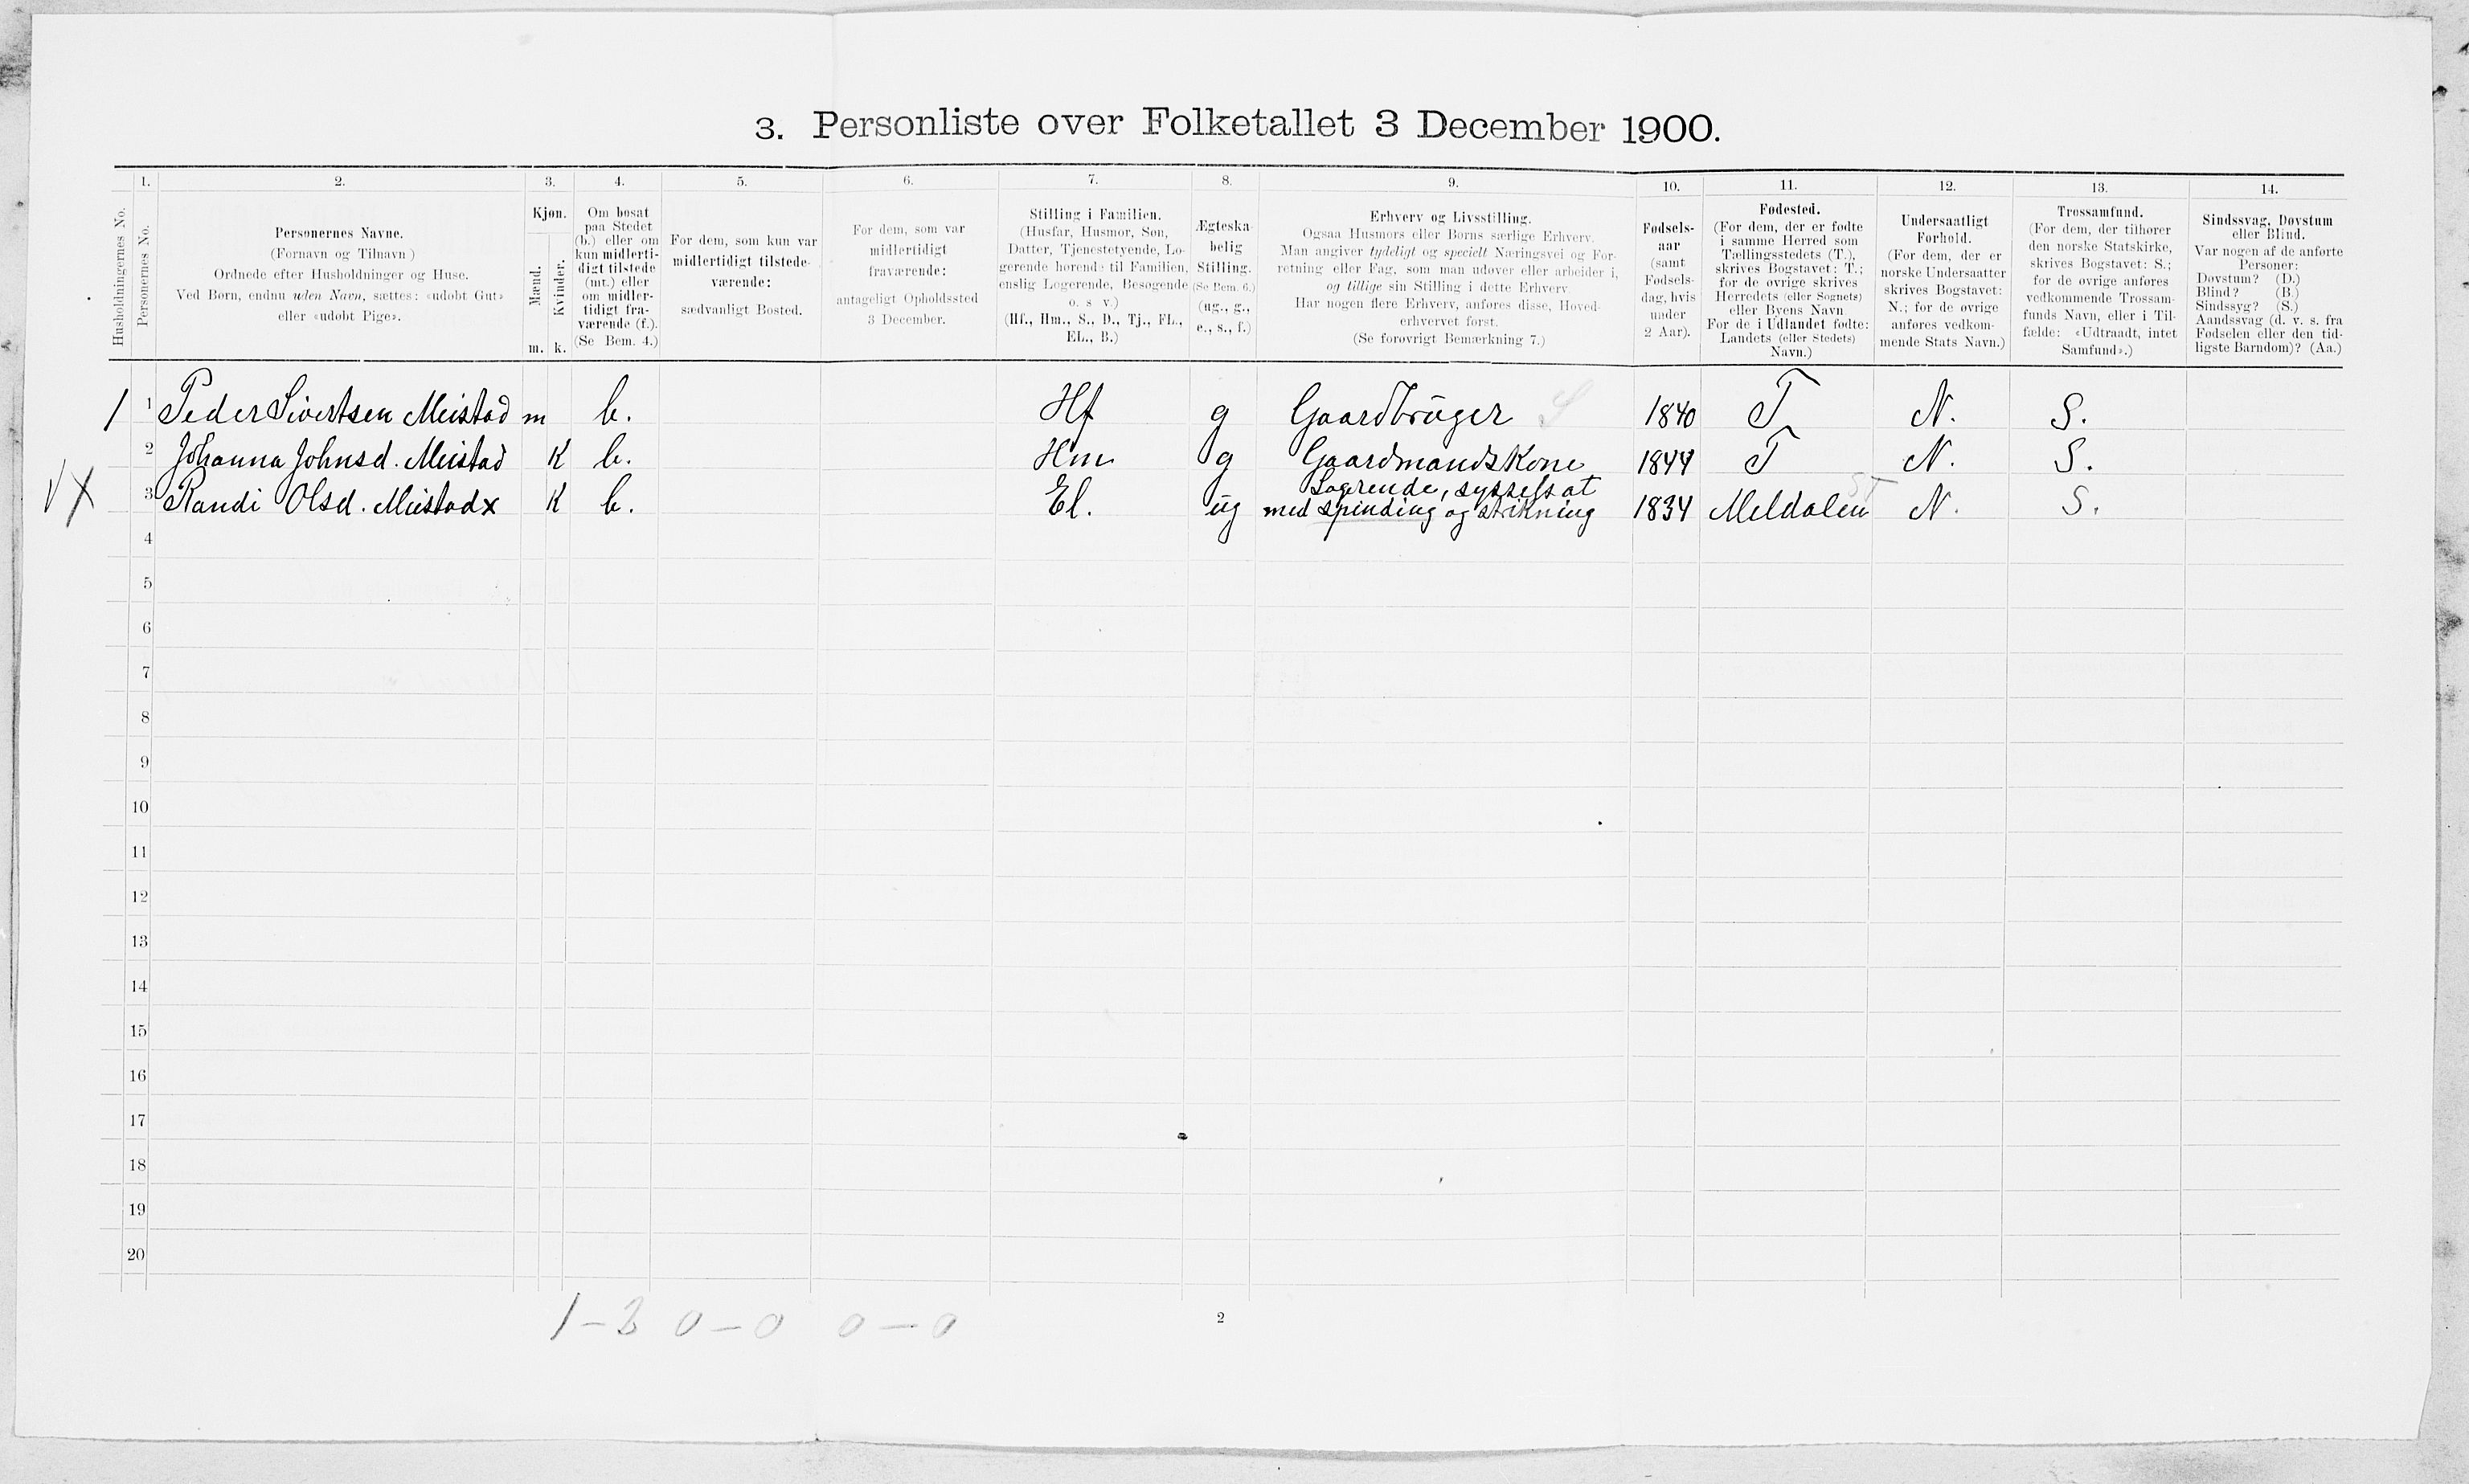 3. Personliste over Folketallet 3 December 1900.
Husholdningernes No.
1.
Personernes No.
2.
Personernes Navne.
(Fornavn og Tilnavn)
Ordnede efter Husholdninger og Huse.
Ved Børn, endnu uden Navn, sættes: «udøbt Gut»
eller «udøbt Pige».
3.
Kjøn.
Mænd.
Kvinder.
m. k.
4.
Om bosat
paa Stedet
(b.) eller om
kun midlerti-
digt tilstede
(mt.) eller
om midler-
tidigt fra-
værende (f.).
(Se Bem. 4.)
5.
For dem, som kun var
midlertidigt tilstede-
værende:
sædvanligt Bosted.
6.
For dem, som var
midlertidigt
fraværende:
antageligt Opholdssted
3 December.
7.
Stilling i Familien.
(Husfar, Husmor, Søn,
Datter, Tjenestetyende, Lo-
gerende hørende til Familien,
enslig Logerende, Besøgende
o. s v.)
(Hf., Hm., S., D., Tj., FL.,
EL., B.)
8.
Ægteska-
belig
Stilling.
(Se Bem. 6.)
(ug., g.,
e., s., f.)
9.
Erhverv og Livsstilling.
Ogsaa Husmors eller Børns særlige Erhverv.
Man angiver tydeligt og specielt Næringsvei og For-
retning eller Fag, som man udøver eller arbeider i,
og tillige sin Stilling i dette Erhverv.
Har nogen flere Erhverv, anføres disse, Hoved-
erhvervet først.
(Se forøvrigt Bemærkning 7.)
10.
Fødsels-
aar
(samt
Fødsels-
dag, hvis
under
2 Aar).
11.
Fødested.
(For dem, der er fødte
i samme Herred som
Tællingsstedets (T.),
skrives Bogstavet: T.;
for de øvrige skrives
Herredets (eller Sognets)
eller Byens Navn
For de i Udlandet fødte:
Landets (eller Stedets)
Navn.)
12.
Undersaatligt
Forhold.
(For dem, der er
norske Undersaatter
skrives Bogstavet:
N.; for de øvrige
anføres vedkom-
mende Stats Navn.)
13.
Trossamfund.
(For dem, der tilhører
den norske Statskirke,
skrives Bogstavet: S.;
for de øvrige anføres
vedkommende Trossam-
funds Navn, eller i Til-
fælde: «Udtraadt, intet
Samfund».)
14.
Sindssvag, Døvstum
eller Blind.
Var nogen af de anførte
Personer:
Døvstum? (D.)
Blind? (B.)
Sindssyg? (S.)
Aandssvag (d. v. s. fra
Fødselen eller den tid-
ligste Barndom)? (Aa.)
1 1 Peder Sivertsen Meistad m b. Hf g Gaardbrüger S 1840 T N. S.
2 Johanna Johnsd. Meistad K b. Hm g Gaardmands Kone 1844 T N. S.
3 Randi Olsd. Meistad x K b. El. üg Logerende, sysselsat
med spinding og strikning 1834 Meldalen N. S.
4
5
6
7
8
9
10
11
12
13
14
15
16
17
18
19
20
1 – 3 0 – 0 0 – 0
2